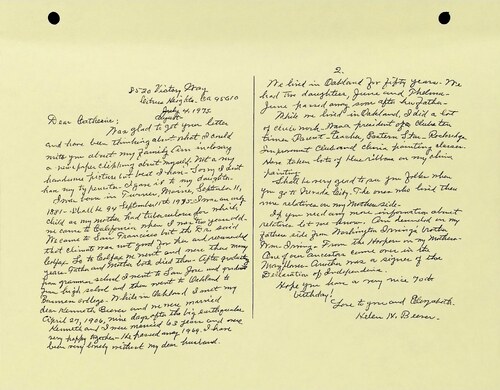 8520 Victory Way
Citrus Heights, CA 95610
July 4, 1975
August
Dear Catherine:
Was glad to get your letter
and have been thinking about what I could
write you about my family. Am inclosing
a newspaper clipping about myself. Not a very
handsome picture but best I have. Sorry I don't
have my typewriter. I gave it to my daughter.
I was born in Turner, Maine, September 11,
1881 - Shall be 94 September 11th 1975. I was an only
child as my mother had tuberculosis for which
we came to California when I was two years old.
We came to San Francisco but the Dr. said
that climate was not good for her and recommended
Colfax. So to Colfax we went and were there many
years. Father and Mother both died there. After graduating
from grammar school I went to San Jose and graduated
from high school and then went to Oakland to
Business college. While in Oakland I met my
dear Kenneth Beever and we were married
April 27, 1906, nine days after the big earthquake.
Kenneth and I were married 63 years and were
very happy together. He passed away 1969. I have
been very lonely without my dear husband.
2.
We lived in Oakland for fifty years. We
had two daughters, June and Thelma.
June passed away soon after her father.
While we lived in Oakland, I did a lot
of club work. Was a president of a club
times Parent-Teacher, Eastern Star, Rockridge
Improvement Club and china painting classes.
Have taken lots of blue ribbons on my china
painting.
Shall be very glad to see you folks when
you go to Nevada City. The ones who lived there
were relatives on my Mother side.
If you need any more information about
relatives let me know. Am descended on my
fathers side from Washington Irving's brother
Wm. Irving - From the Hoopers on my Mothers.
One of our ancestors came over in the
Mayflower. Another was a signer of the
Declaration of Independence.
Hope you have a very nice 70th
birthday!
Love to you and Elizabeth.
Helen N. Beever